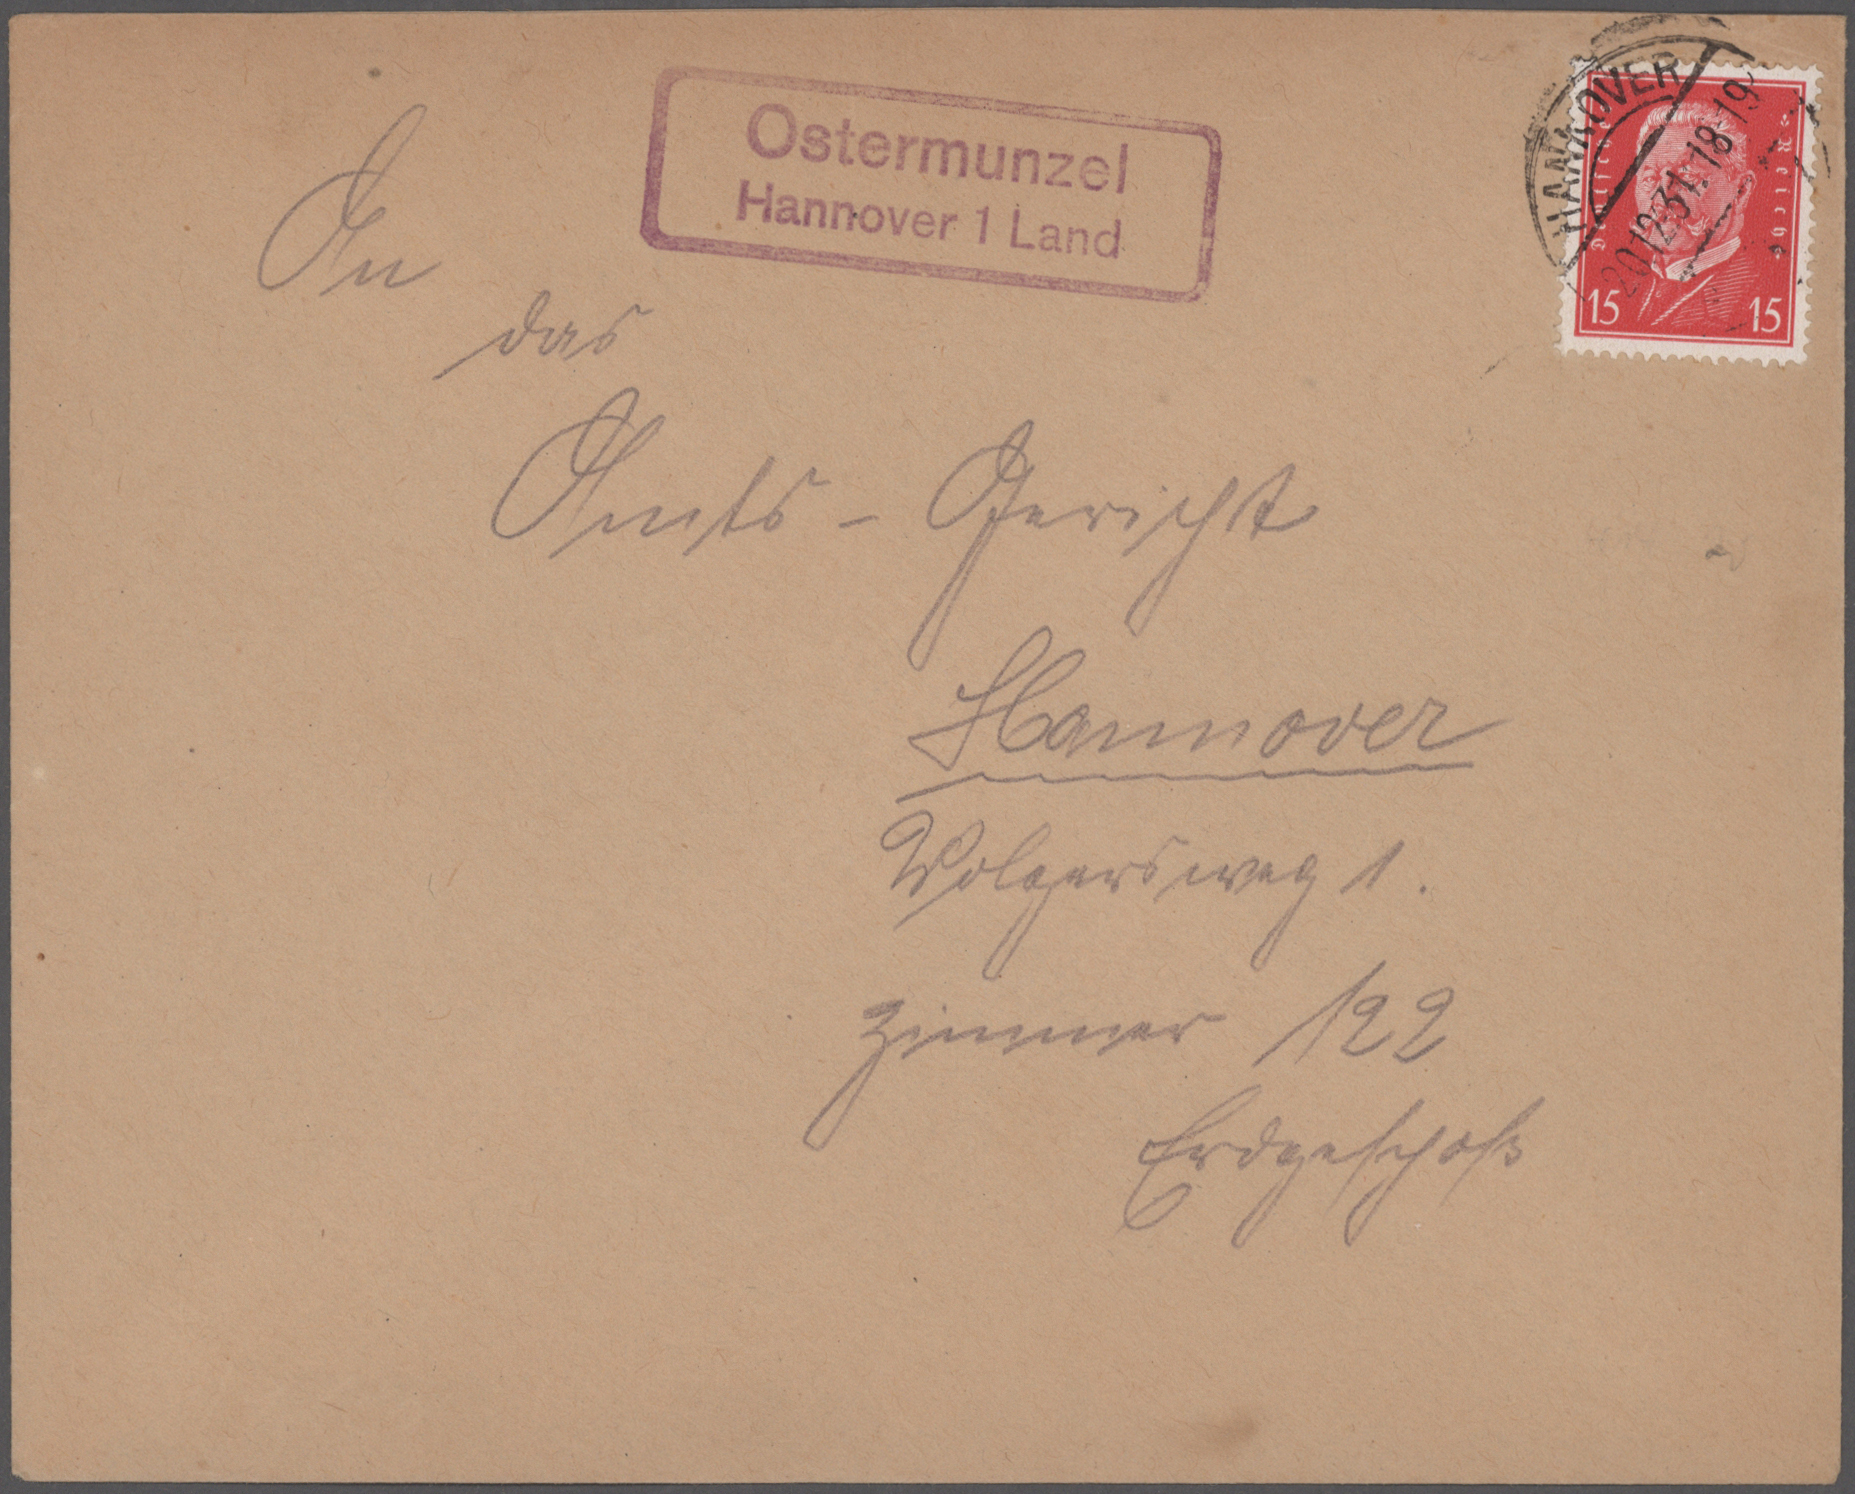 Ostermunzel
Hannover 1 Land
HANNOVER
20.12.31.18-19
Deutsches Reich
15 15
An
das
Amts-Gericht
Hannover
Volgersweg 1.
Zimmer 122
Erdgeschoß